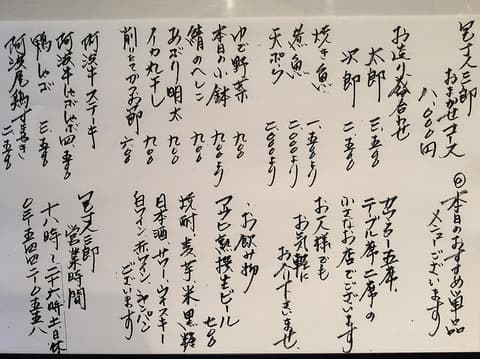 三郎
おまかせコース
八、〇〇〇円
お造り盛合わせ
太郎 三、五〇〇
次郎 二、五〇〇
焼き魚 一、五〇〇より
煮魚 二、〇〇〇より
天ぷら 二、〇〇〇より
ゆで野菜 九〇〇
本日の小鉢 九〇〇より
鯖のへしこ 九〇〇
あぶり明太 九〇〇
イカ丸干し 九〇〇
削りたてかつお節 六〇〇
阿波牛ステーキ
阿波牛しゃぶしゃぶ 四、五〇〇
鴨しゃぶ 三、五〇〇
阿波尾鶏すきやき 二、五〇〇
◎本日のおすすめ単品
メニューございます
カウンター五席、
テーブル席二席の
小さなお店でございます
お一人様でも
お気軽に
お入り下さいませ
お飲み物
アサヒ熟撰生ビール 七〇〇
焼酎 麦 芋 米 黒糖
日本酒、サワー、ウィスキー
白ワイン、赤ワイン、シャンパン
ございます
三郎
営業時間
十八時〜二十六時 土日休